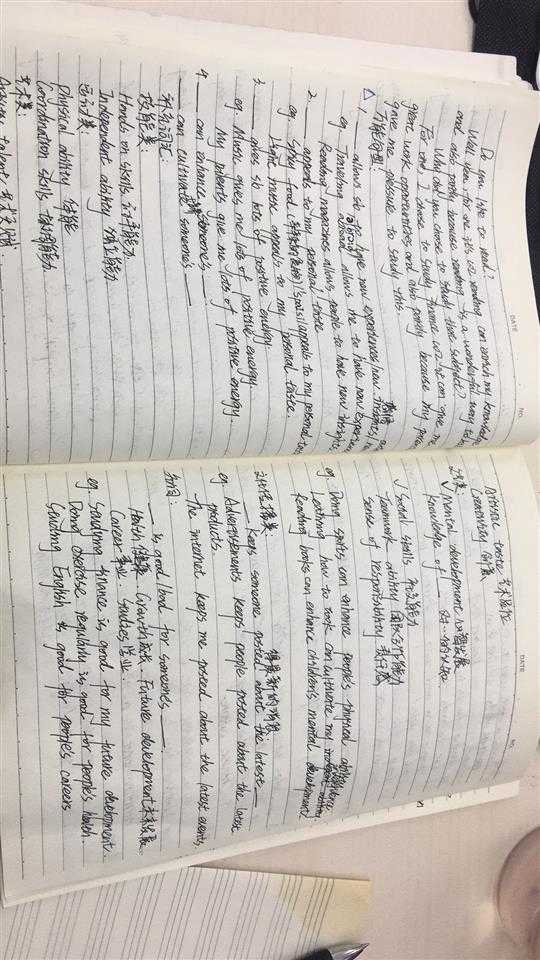 DATE
NO.
Do you like to read?
Well, for me, yes, coz reading can enrich my knowledge
and also partly because reading is a wonderful way to
Why did you choose to study that subject?
For me, I chose to study finance coz it can give me
great work opportunities and also partly because my
gave me pressure to study this.
万能句型:
1. ___ allows sb to have new experiences/new insights/
eg. Travelling abroad allows me to have new
Reading magazines allows people to have new insights
2. ___ appeals to my personal taste
eg. Spicy food appeals to my personal
Light music appeals to my personal taste.
3. ___ gives sb lots of positive energy
eg. Music gives me lots of positive energy.
My parents give me lots of positive energy.
4. ___ can enhance someone's ___
___ can cultivate someone's ___
补充词汇:
技能类:
Hands on skills 动手能力
Independent ability 独立能力
运动类:
Physical ability 体能
Coordination skills 协调能力
艺术类:
talent
DATE
NO.
Personal taste
Creativity 创意
Mental development 心智发展
knowledge of ___ 对…的认知
Social skills 社交能力
Teamwork ability 团队合作能力
Sense of responsibility 责任感
eg. Doing sports can enhance people's physical ability
Learning how to cook can cultivate my
Reading books can enhance children's mental development
___ keeps someone posted about the latest ___
eg. Advertisements keeps people posted about the latest
products.
The internet keeps me posted about the latest events.
___ is good for someone's ___
Health 健康 Growth 成长 Future development 未来发展
Career 事业 Studies 学业
eg. Studying finance is good for my future development.
Doing exercise regularly is good for people's health.
Studying English is good for people's careers